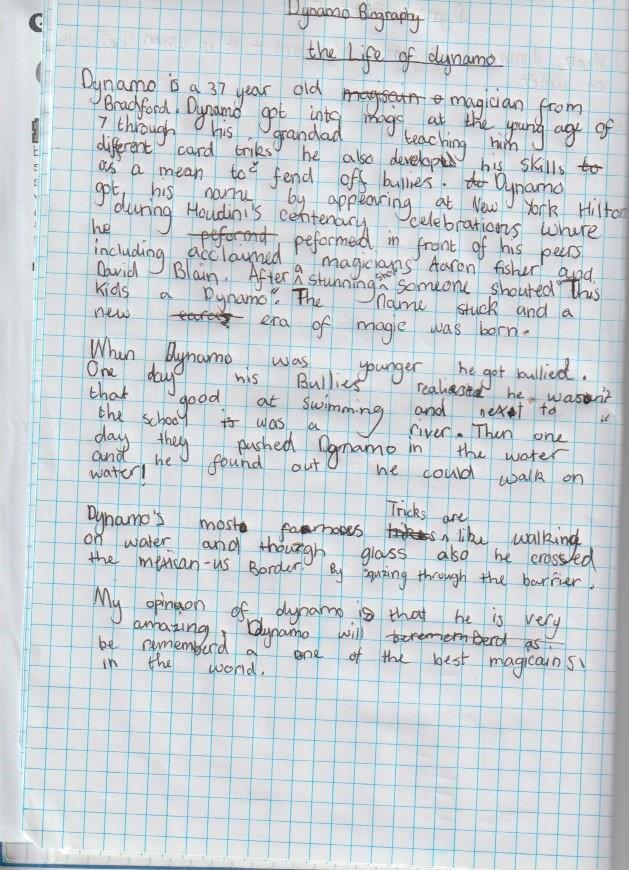 Dynamo Biography
the Life of dynamo
Dynamo is a 37 year old magician from
Bradford. Dynamo got into magc at the young age of
7 through his grandad teaching him
different card triks he also developed his skills to
as a mean to fend off bullies. Dynamo
got his name by appearing at New York Hilton
during Houdini's centenary celebrations where
he peformd peformed in front of his peers
including acclaimed magicians Aaron fisher and
David Blain. After a stunning show someone shouted "This
Kids a Dynamo". The name stuck and a
new era of magic was born.
When Dynamo was younger he got bullied.
One day his Bullies realiesed he wasn't
that good at swimming and next to
the school is was a river. Then one
day they pushed Dynamo in the water
and he found out he could walk on
water!
Dynamo's most famoues Tricks are like walking
on water and thourgh glass also he crossed
the mexican-us Border By squzing through the barrier.
My opinaon of dynamo is that he is very
amazing, Dynamo will beremembered as
be rememberd a one of the best magicains
in the world.